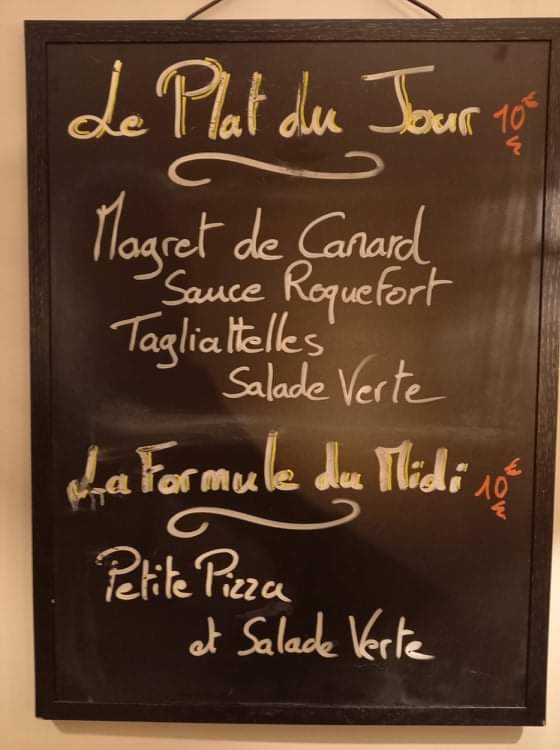 Le Plat du Jour 10€
Magret de Canard
Sauce Roquefort
Tagliattelles
Salade Verte
La Formule du Midi 10€
Petite Pizza
et Salade Verte